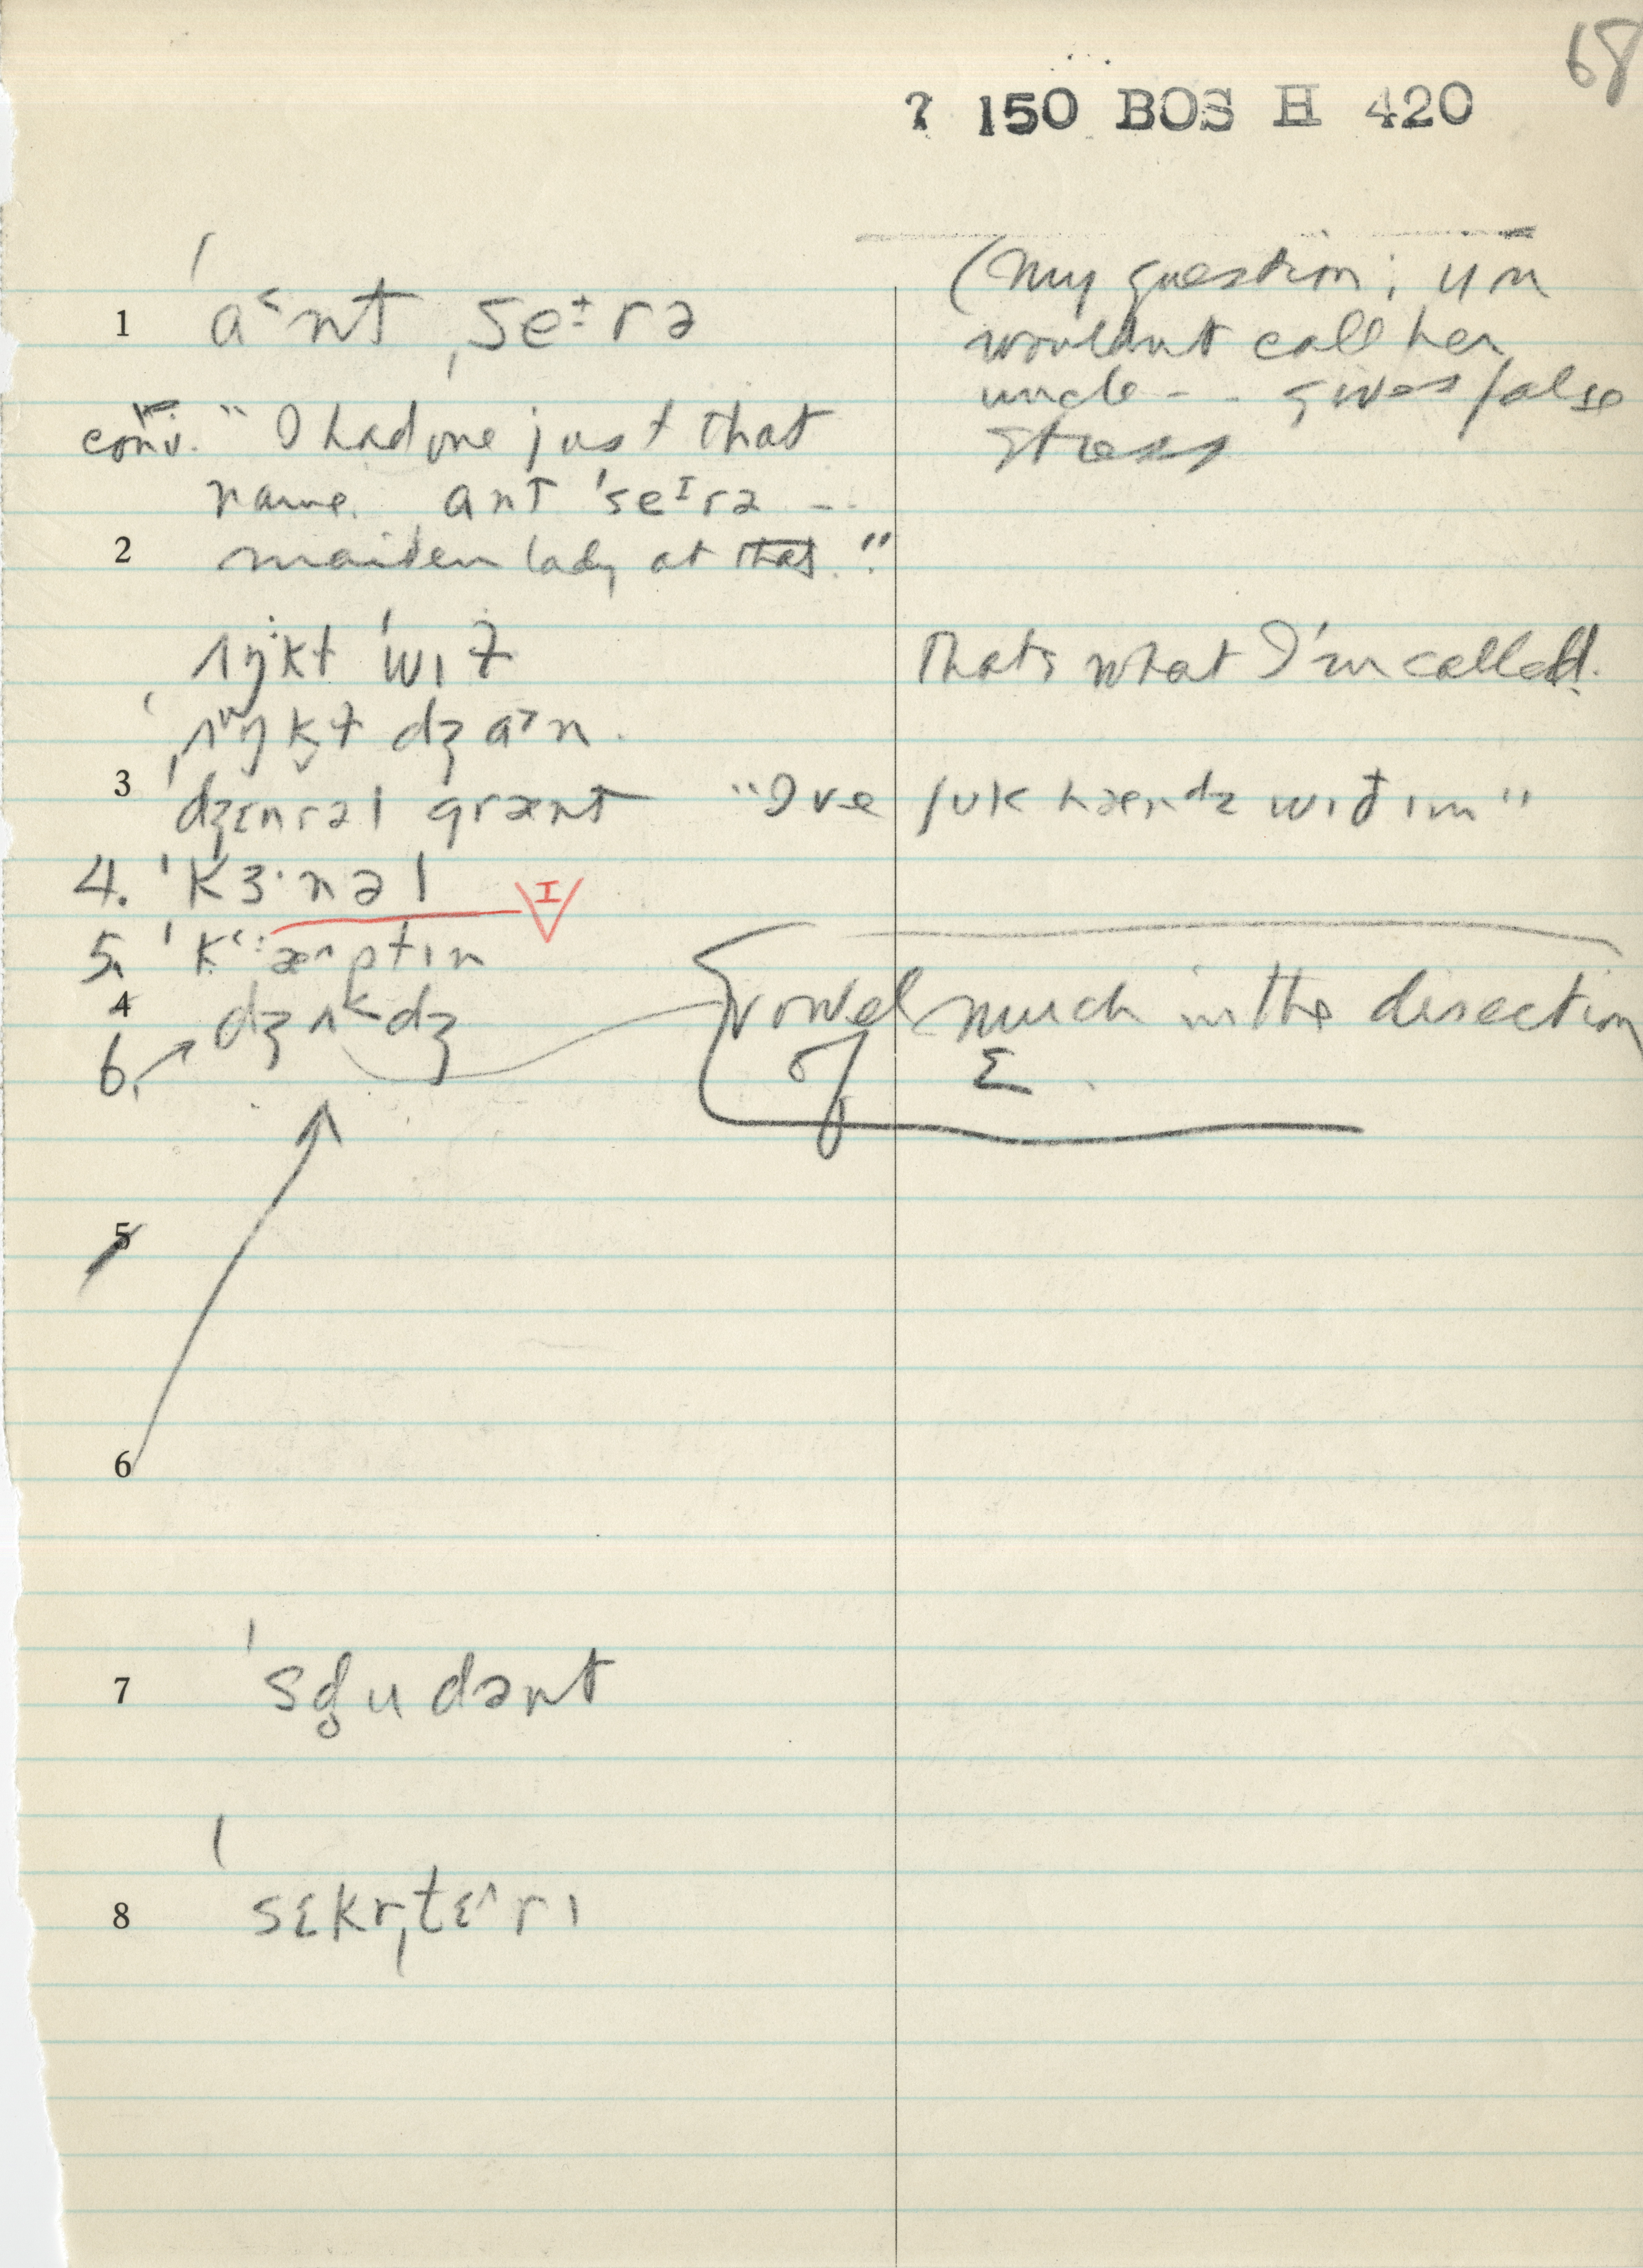 68
? 150 BOS H 420
(My question: you
wouldnt call her
uncle - - gives false
stress
1 ˈa˂nt ˌseɪrə
conv. "I had one just that
name. ant ˈseɪrə --
2 maiden lady at that."
ˌʌŋkɫ ˈwɪɫ Thats what I'm called.
ˌʌŋkɫ dʒɑ˃n.
3 ˈdʒɛnrəl grænt "I've ʃʊk hændz wɪð ɪm"
4. ˈkɜ·nəl
I
5. ˈkæ^ptɪn
4
6. dʒʌ˂dʒ vowel much in the direction
of ɛ.
5
6
7 ˈsd̥udənt
8 ˈsɛkrˌtɛ^rɪ